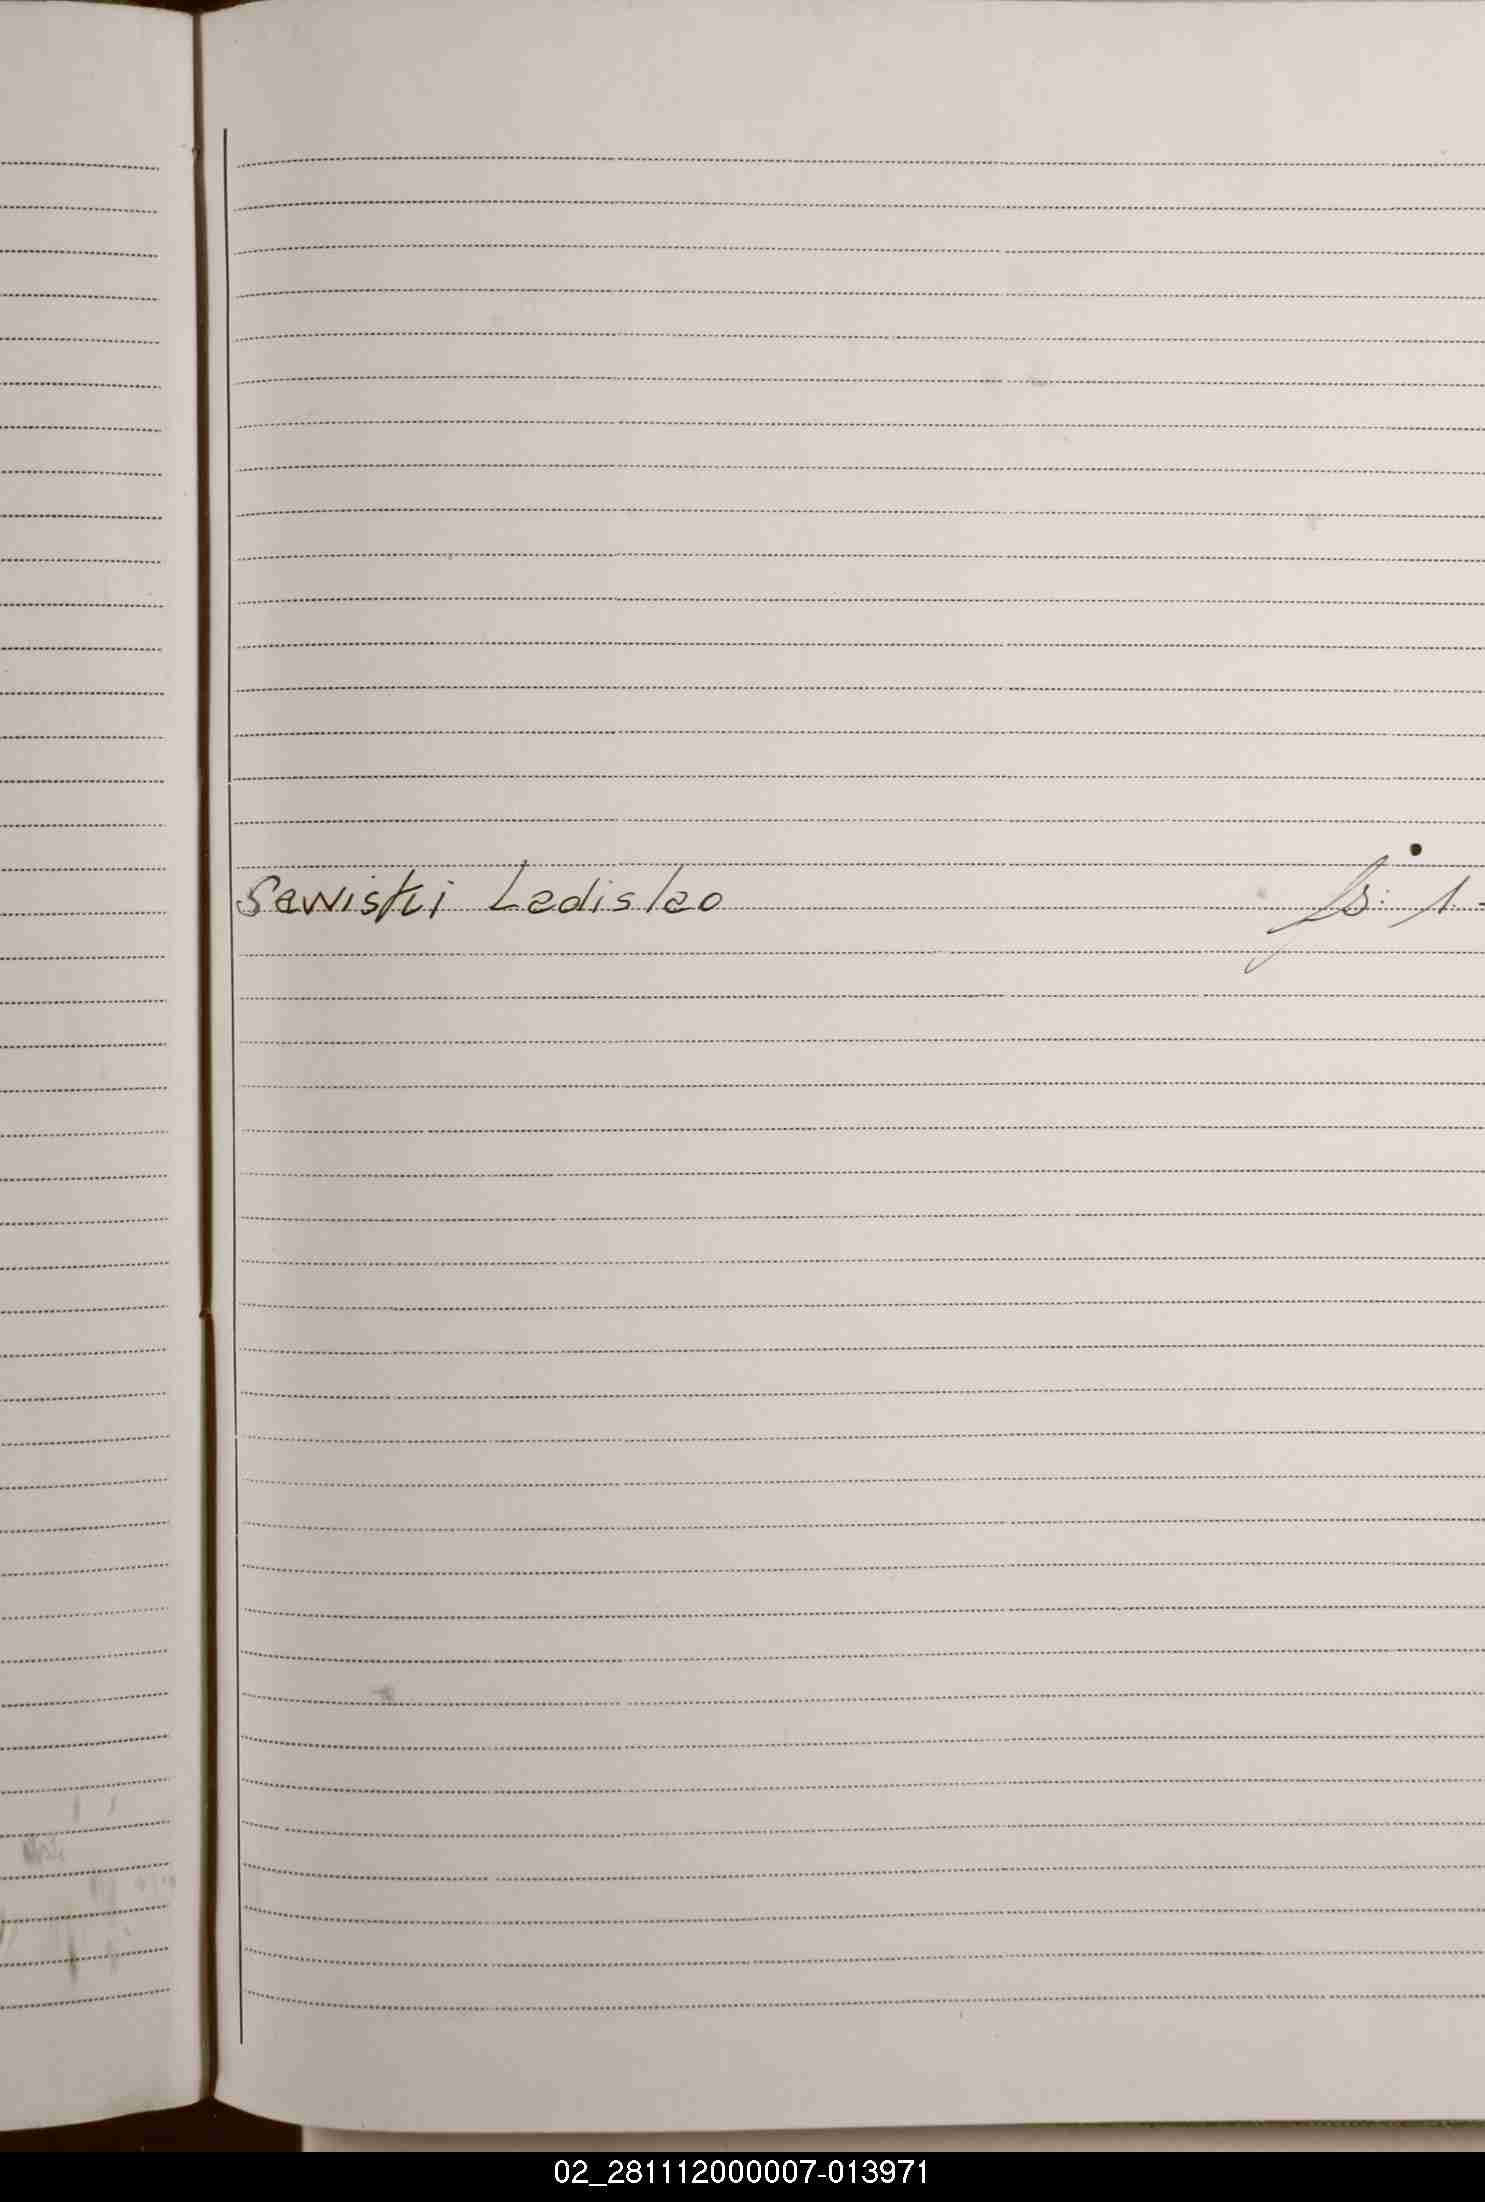 Sawiski Ladislao fs. 1.-
02_281112000007-013971